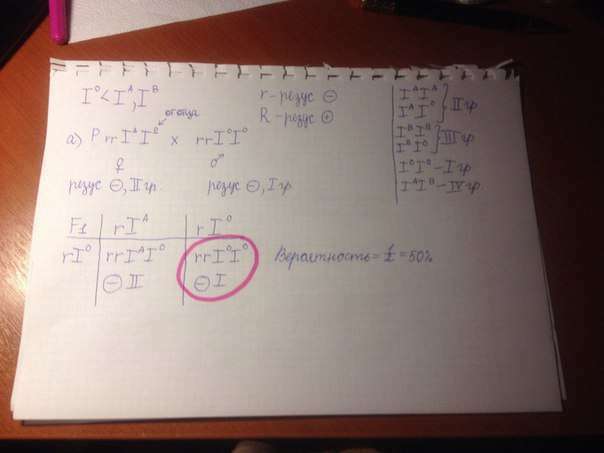 I⁰ < Iᴬ, Iᴮ
r - резус ⊖
R - резус ⊕
IᴬIᴬ
IᴬI⁰ } II гр
IᴮIᴮ
IᴮI⁰ } III гр
I⁰I⁰ - I гр
IᴬIᴮ - IV гр
от отца
а) P rrIᴬI⁰ x rrI⁰I⁰
♀ ♂
резус ⊖, II гр. резус ⊖, I гр.
F1 rIᴬ rI⁰
rI⁰ rrIᴬI⁰ rrI⁰I⁰
⊖ II ⊖ I
Вероятность = = 50%